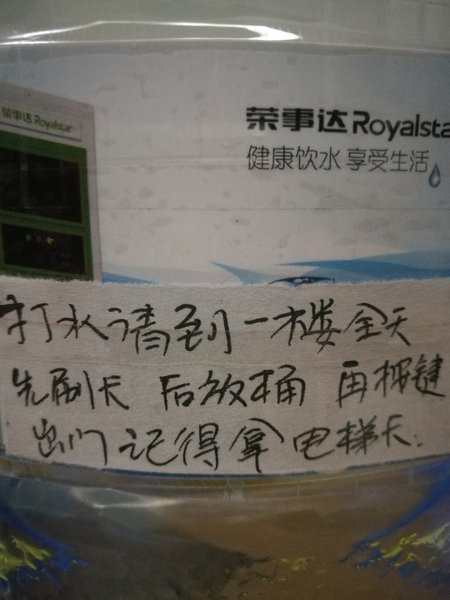 荣事达 Royalstar
荣事达 Royalsta
健康饮水 享受生活
打水请到一楼全天
先刷卡 后放桶 再按键
出门记得拿电梯卡.